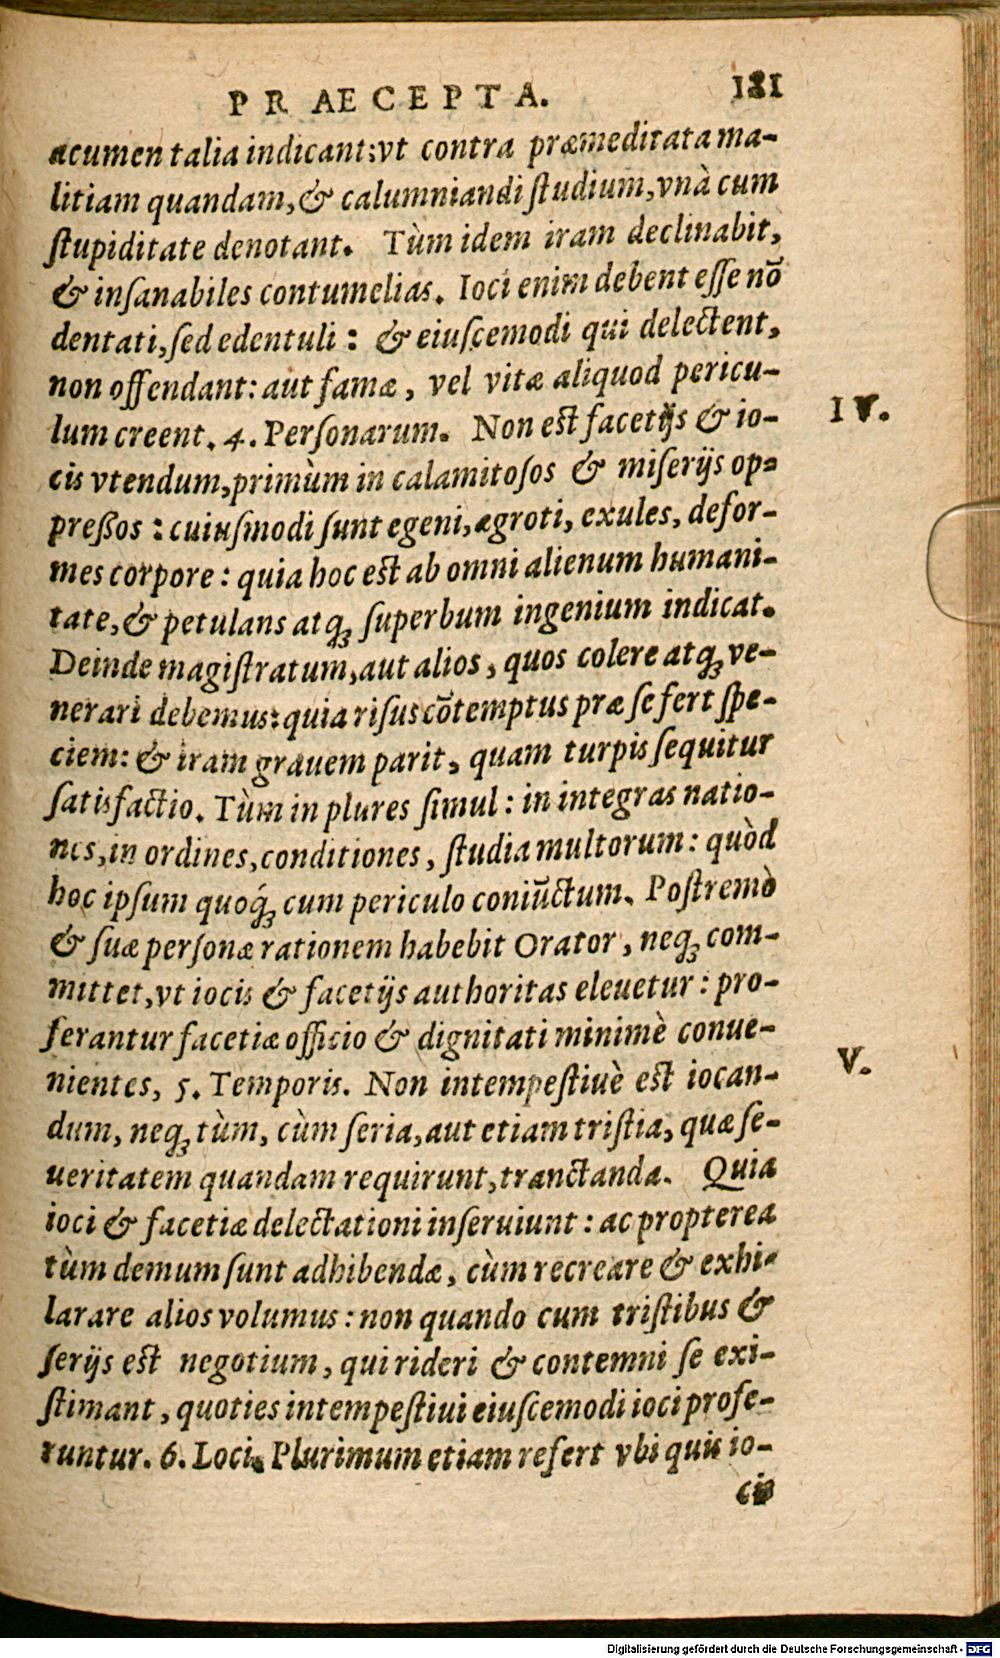 PRAECEPTA. 181
acumen talia indicant: vt contra præmeditata ma-
litiam quandam, & calumniandi ſtudium, vnà cum
ſtupiditate denotant. Tùm idem iram declinabit,
& inſanabiles contumelias. Ioci enim debent eſſe nõ
dentati, ſed edentuli: & eiuſcemodi qui delectent,
non offendant: aut famæ, vel vitæ aliquod pericu-
lum creent. 4. Perſonarum. Non eſt facetijs & io-
IV.
cis vtendum, primùm in calamitoſos & miſerijs op-
preßos: cuiuſmodi ſunt egeni, ægroti, exules, defor-
mes corpore: quia hoc eſt ab omni alienum humani-
tate, & petulans atq́; ſuperbum ingenium indicat.
Deinde magiſtratum, aut alios, quos colere atq́; ve-
nerari debemus: quia riſus cõtemptus præ ſe fert ſpe-
ciem: & iram grauem parit, quam turpis ſequitur
ſatisfactio. Tùm in plures ſimul: in integras natio-
nes, in ordines, conditiones, ſtudia multorum: quòd
hoc ipſum quoq́; cum periculo coniũctum. Poſtremò
& ſuæ perſonæ rationem habebit Orator, neq; com-
mittet, vt iocis & facetijs authoritas eleuetur: pro-
ferantur facetiæ officio & dignitati minimè conue-
nientes, 5. Temporis. Non intempeſtiuè eſt iocan-
V.
dum, neq; tùm, cùm ſeria, aut etiam triſtia, quæ ſe-
ueritatem quandam requirunt, tranctanda. Quia
ioci & facetiæ delectationi inſeruiunt: ac propterea
tùm demum ſunt adhibendæ, cùm recreare & exhi-
larare alios volumus: non quando cum triſtibus &
ſerijs eſt negotium, qui rideri & contemni ſe exi-
ſtimant, quoties intempeſtiui eiuſcemodi ioci profe-
runtur. 6. Loci. Plurimum etiam refert vbi quis io-
cis
Digitalisierung gefördert durch die Deutsche Forschungsgemeinschaft - DFG